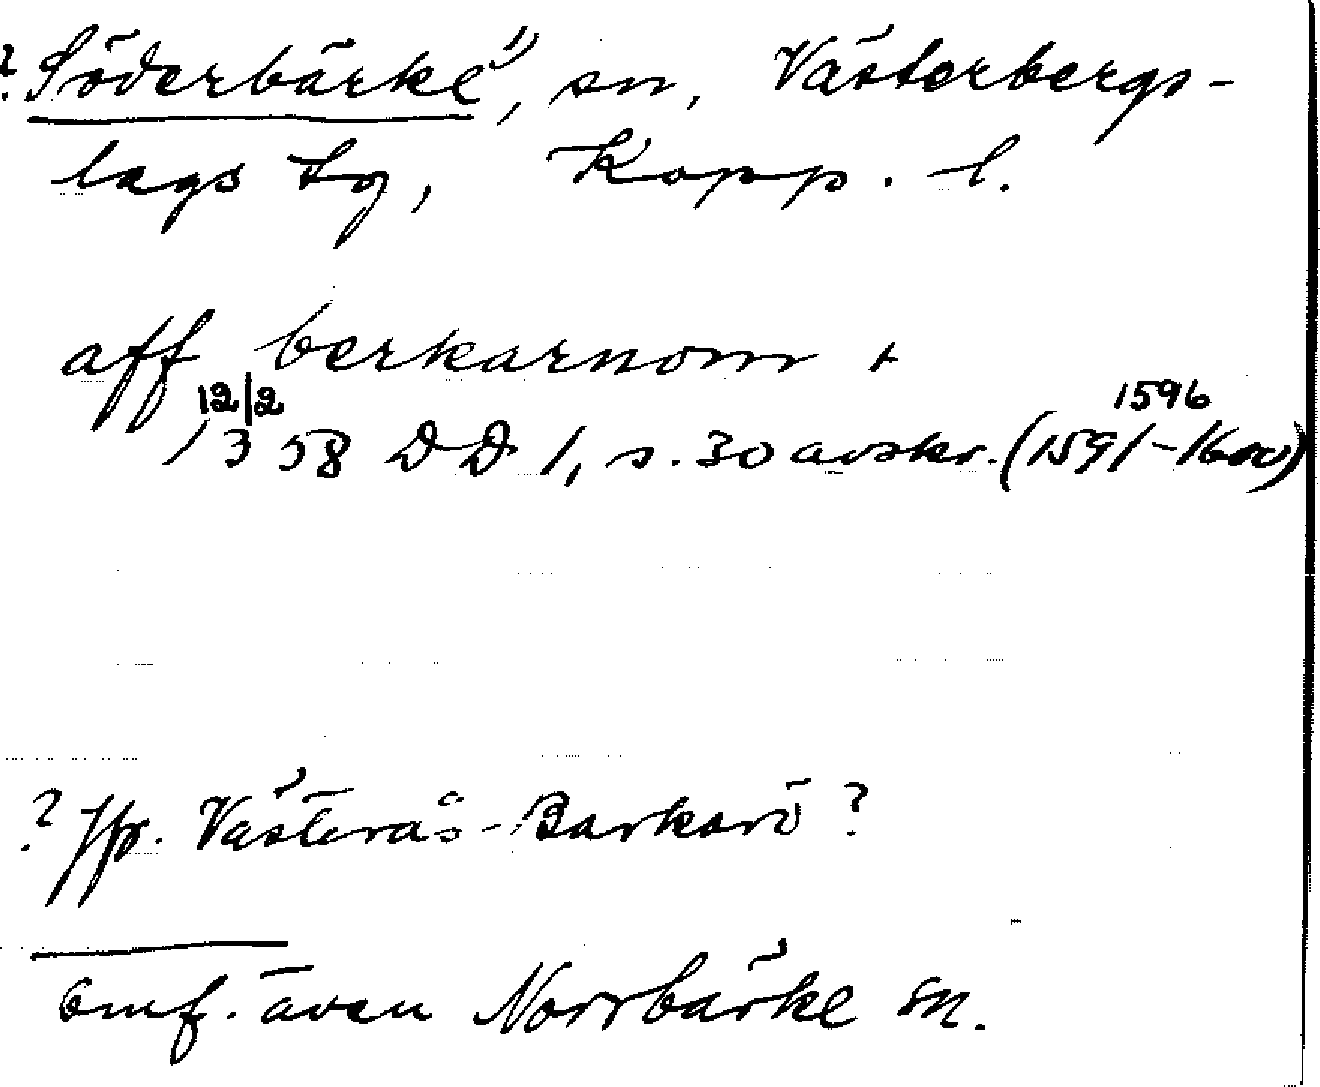 ? Söderbärke¹⁾, sn, Västerbergs-
lags tg, Kopp. l.
aff berkarnom +
12/2 1596
1358 DD 1, s. 30 avskr. (1591-1600)
? Jfr. Västerås-Barkarö ?
omf. även Norrbärke sn.